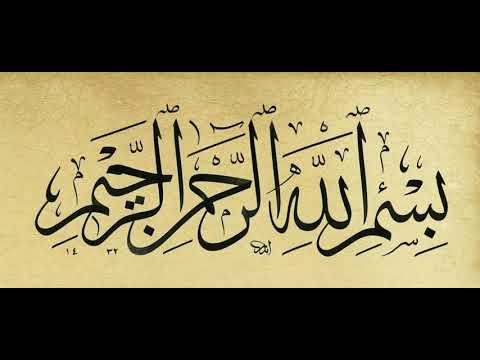 بِسْمِ اللَّهِ الرَّحْمٰنِ الرَّحِيمِ
١٤٣٢